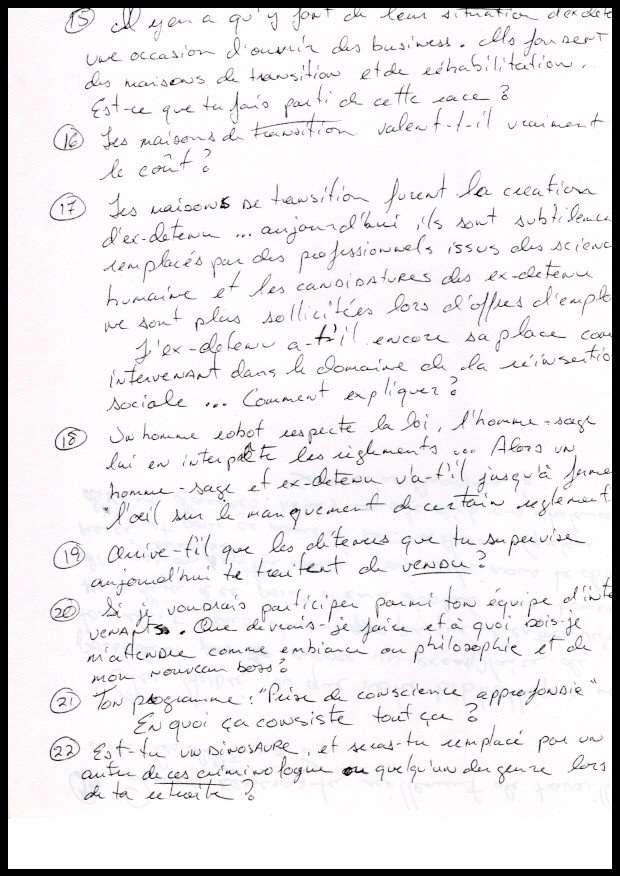 15) Il y en a qu'y font de leur situation d'ex-déte
une occasion d'ouvrir des business. Ils fondent
des maisons de transition et de réhabilitation.
Est-ce que tu fais parti de cette race ?
16) Les maisons de transition valent-t-il vraiment
le coût ?
17) Les maisons de transition furent la creation
d'ex-detenu ... aujourd'hui ils sont subtileme
remplacés par des professionnels issus des scienc
humaine et les candidatures des ex-detenu
ne sont plus sollicitées lors d'offres d'emplo
L'ex-detenu a-t'il encore sa place com
intervenant dans le domaine de la réinsertio
sociale ... Comment expliquer ?
18) Un homme robot respecte la loi, l'homme-sage
lui en interprète les règlements ... Alors un
homme-sage et ex-detenu va-t'il jusqu'à ferme
l'oeil sur le manquement de certain reglement
19) Arrive-t'il que les détenus que tu supervise
aujourd'hui te traitent de vendu ?
20) Si je voudrais participer parmi ton équipe d'inte
venants. Que devrais-je faire et à quoi dois-je
m'attendre comme embiance ou philosophie et de
mon nouveau boss ?
21) Ton programme : "Prise de conscience approfondie"
En quoi ça consiste tout ça ?
22) Est-tu un dinosaure, et seras-tu remplacé par un
autre de ces criminologue ou quelqu'un du genre lors
de ta retraite ?